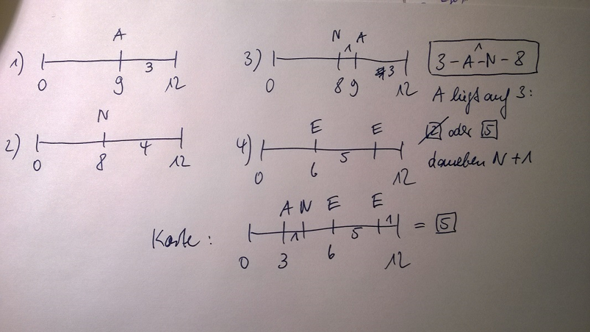 1) A
3
0 9 12
2) N
4
0 8 12
3) N A
1 3
0 8 9 12
4) E E
5
0 6 12
3-A-N-8
1
A liegt auf 3:
2 oder 5
daneben N+1
Karte: A N E E
1 5 1
0 3 6 12
= 5